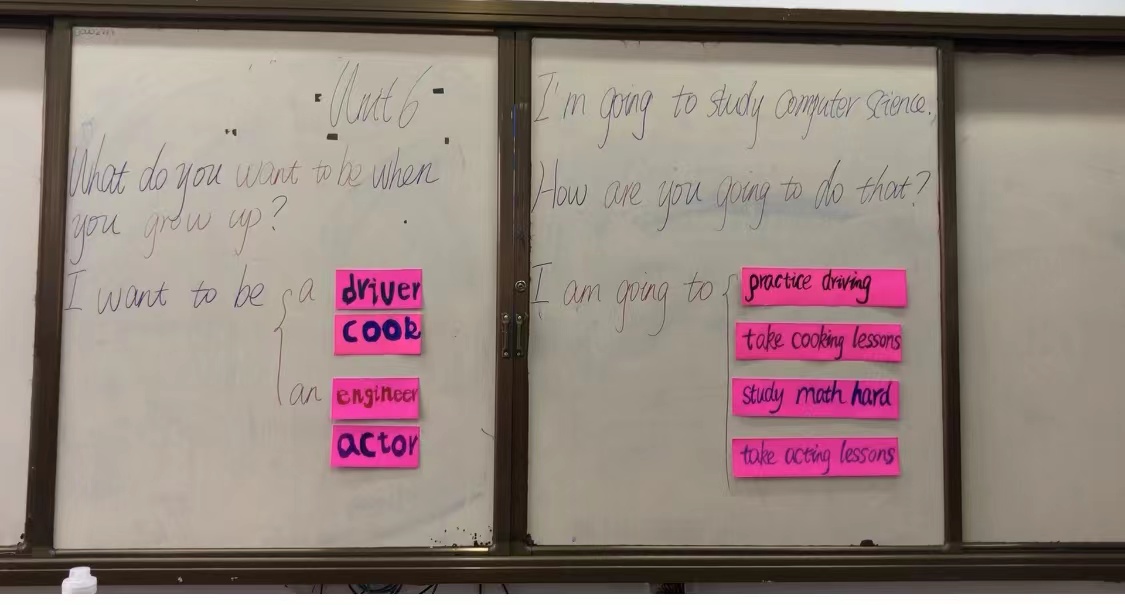 Unit 6
What do you want to be when
you grow up?
I want to be
a driver
cook
an engineer
actor
I'm going to study computer science.
How are you going to do that?
I am going to
practice driving
take cooking lessons
study math hard
take acting lessons